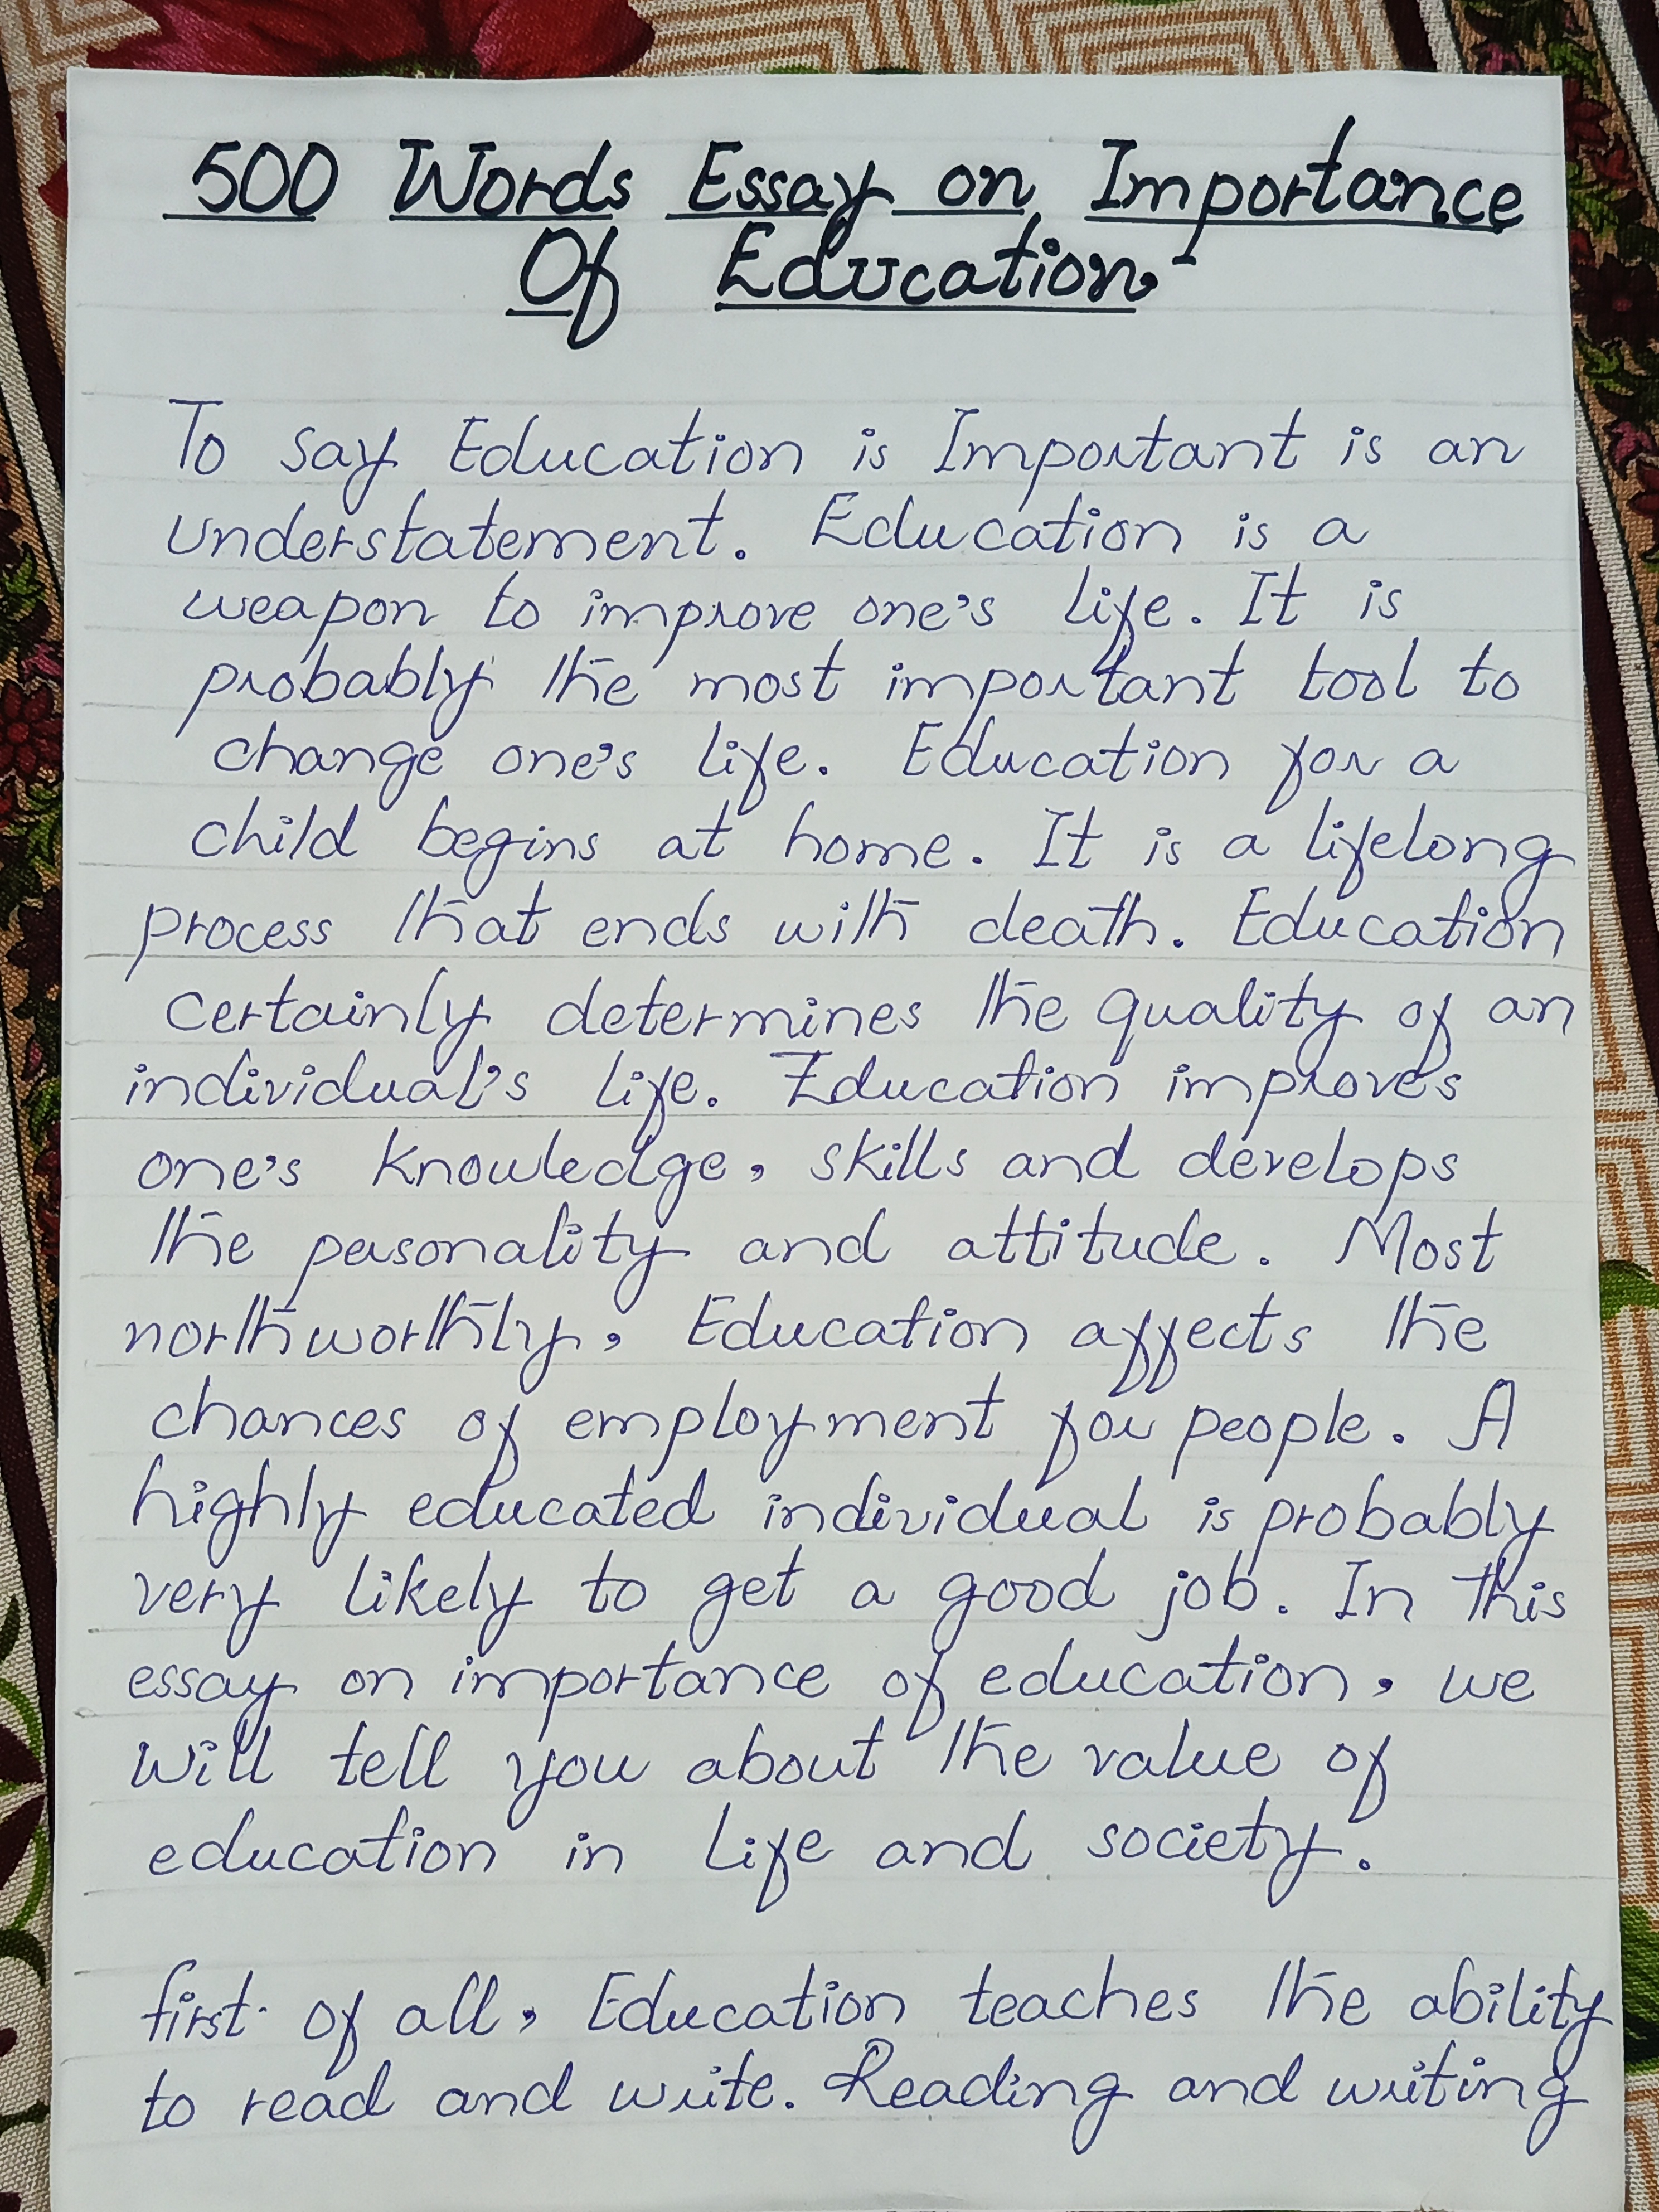 500 Words Essay on Importance
Of Education.
To say Education is Important is an
understatement. Education is a
weapon to improve one's life. It is
probably the most important tool to
change one's life. Education for a
child begins at home. It is a lifelong
process that ends with death. Education
certainly determines the quality of an
individual's life. Education improves
one's knowledge, skills and develops
the pesonality and attitude. Most
northworthly, Education affects the
chances of employment for people. A
highly educated individual is probably
very likely to get a good job. In this
essay on importance of education, we
will tell you about the value of
education in life and society.
first of all, Education teaches the ability
to read and write. Reading and writing